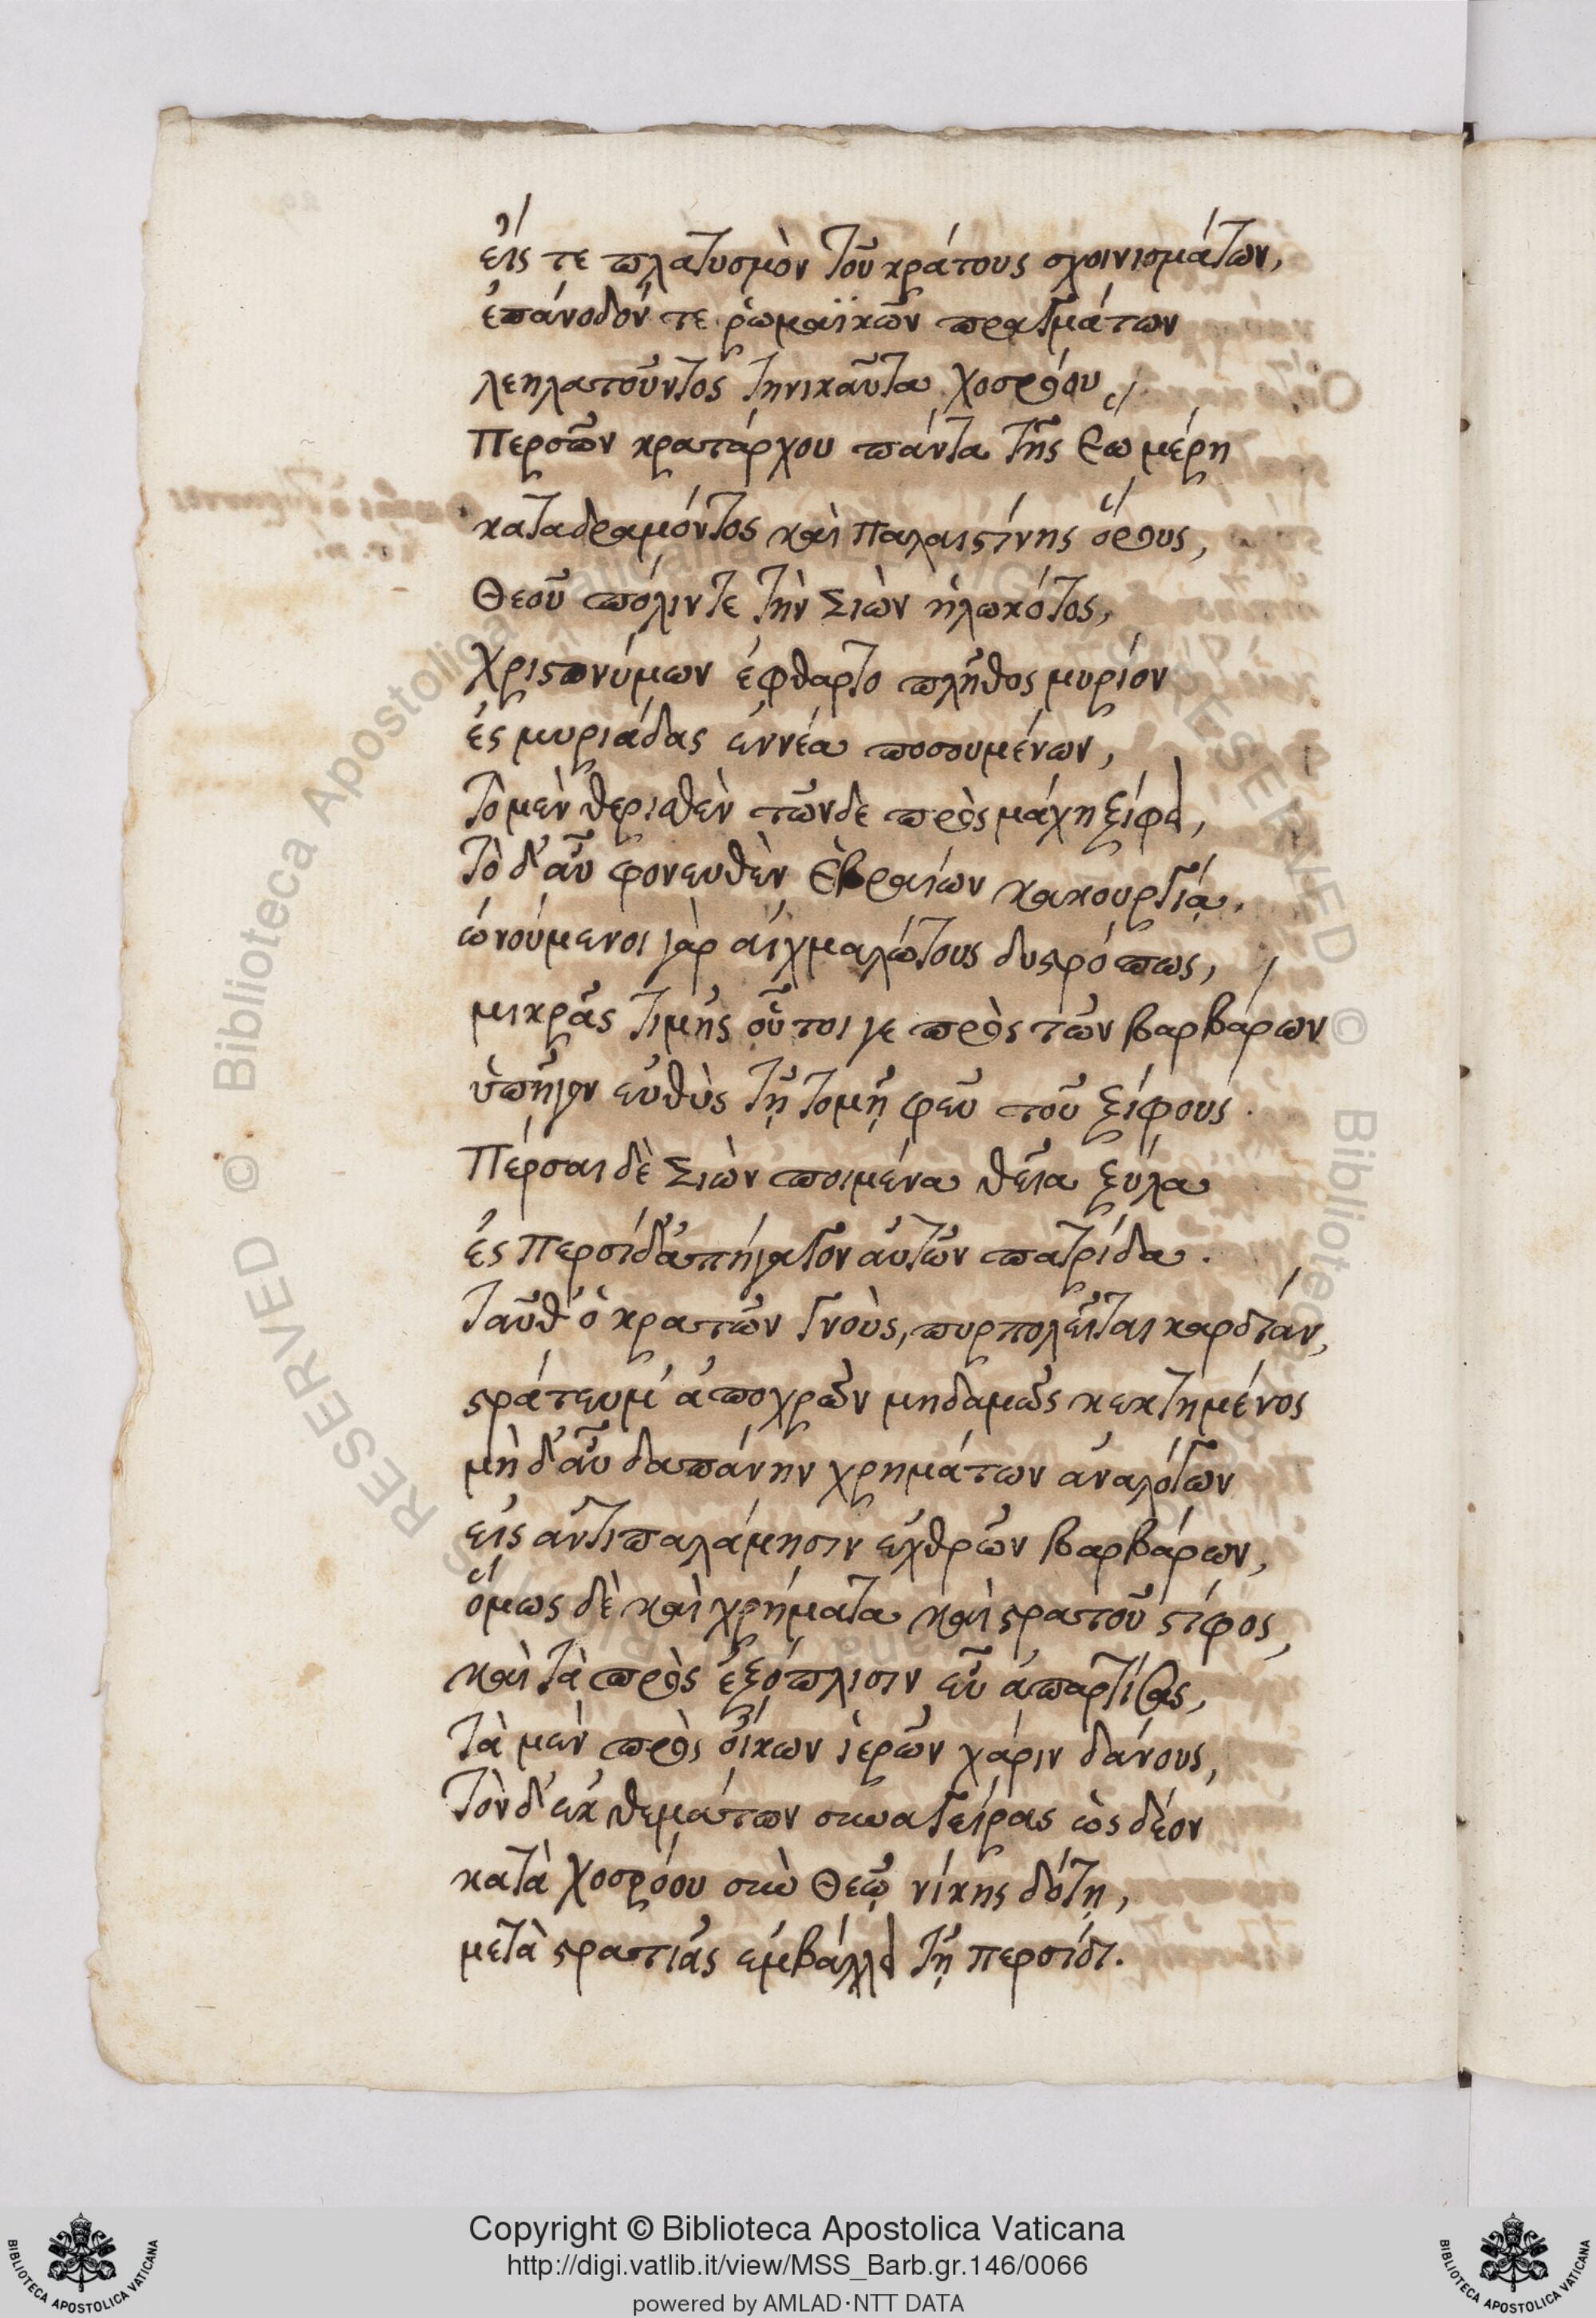 εἴς τε πλατυσμὸν τοῦ κράτους σχοινισμάτων,
ἐπάνοδόν τε ῥωμαϊκῶν πραγμάτων
λεηλατοῦντος τηνικαῦτα Χοσρόου
Περσῶν κρατάρχου πάντα τῆς ἕω μέρη
καταδραμόντος καὶ Παλαιστίνης ὅρους,
Θεοῦ πόλιν τε τὴν Σιὼν ἡλωκότος,
Χριστωνύμων ἔφθαρτο πλῆθος μυρίον
ἐς μυριάδας ἐννέα ποσουμένων,
τὸ μὲν θερισθὲν τῶνδε πρὸς μάχη ξίφει,
τὸ δ' αὖ φονευθὲν Ἑβραίων κακουργίᾳ.
ὠνούμενοι γὰρ αἰχμαλώτους δυστρόπως,
μικρᾶς τιμῆς οὗτοί γε πρὸς τῶν βαρβάρων
ὑπῆγον εὐθὺς τῇ τομῇ φεῦ τοῦ ξίφους.
Πέρσαι δὲ Σιὼν ποιμένα θεῖα ξύλα
ἐς Περσίδ' ἀπήγαγον αὐτῶν πατρίδα.
ταῦθ' ὁ κρατῶν γνοὺς, πυρπολεῖται καρδίαν,
στράτευμ' ἀποχρῶν μηδαμῶς κεκτημένος
μὴ δ' αὖ δαπάνην χρημάτων ἀναλόγων
εἰς ἀντιπαλάμησιν ἐχθρῶν βαρβάρων,
ὅμως δὲ καὶ χρήματα καὶ στρατοῦ στίφος,
καὶ τὰ πρὸς ἐξόπλισιν εὖ ἀπαρτίσας,
τὰ μὲν πρὸς οἴκων ἱερῶν χάριν δάνους,
τὸν δ' ἐκ θεμάτων συναγείρας ὡς δέον
κατὰ Χοσρόου σὺν Θεῷ νίκης δότῃ,
μετὰ στρατιᾶς ἐμβάλλει τῇ Περσίδι.
RESERVED © Biblioteca Apostolica Vaticana
Copyright © Biblioteca Apostolica Vaticana
http://digi.vatlib.it/view/MSS_Barb.gr.146/0066
powered by AMLAD·NTT DATA
BIBLIOTECA APOSTOLICA VATICANA
BIBLIOTECA APOSTOLICA VATICANA